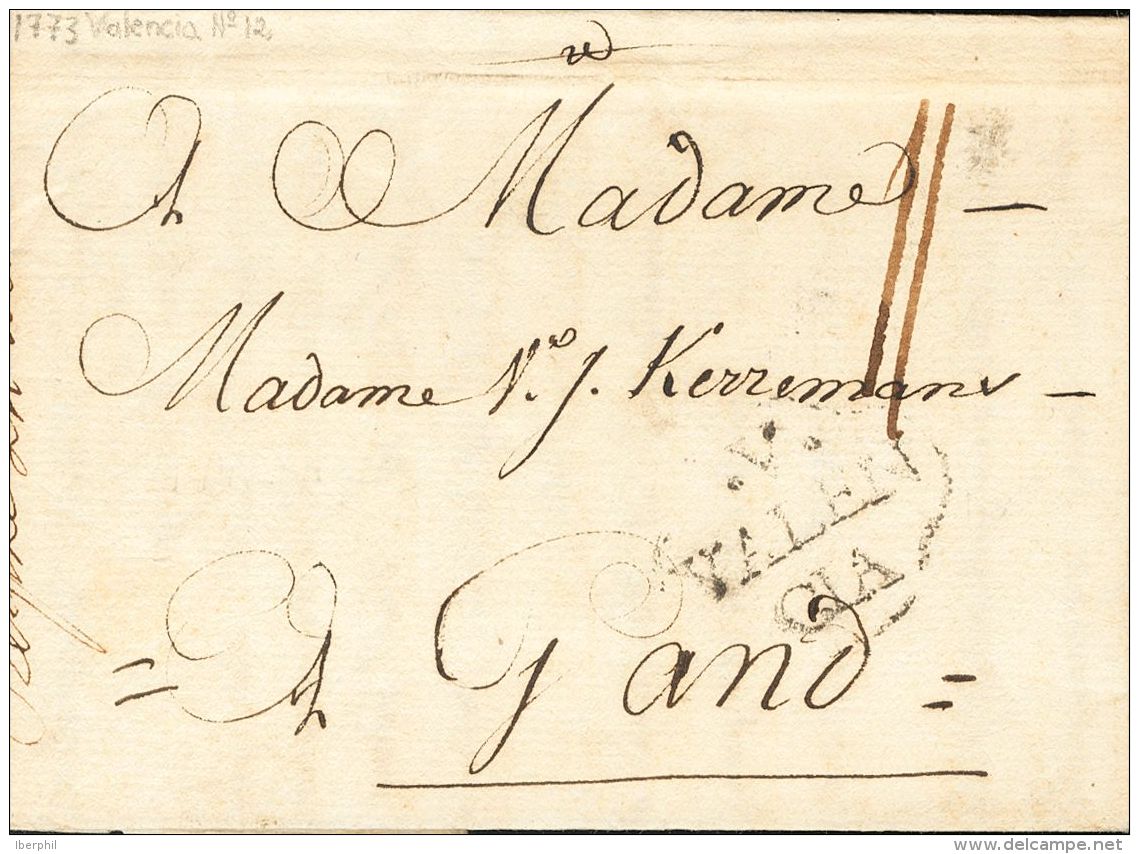 1773 Valencia Nº 12,
A Madame
Madame Vᵉ J. Kerremans
.V.
VALEN
CIA
= A Gand =
Iberphil
delcampe.net